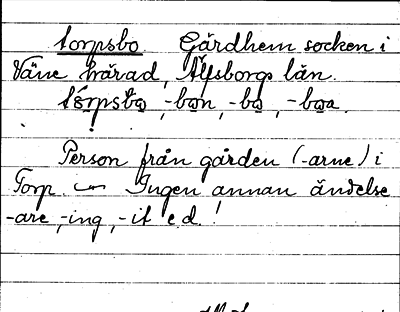 torpsbo. Gärdhem socken i
Väne härad, Älfsborgs län.
tórpsbo, -bon, -bo, -boa.
Person från gården (-arne) i
Torp. — Ingen annan ändelse
-are, -ing, -it e.d.!